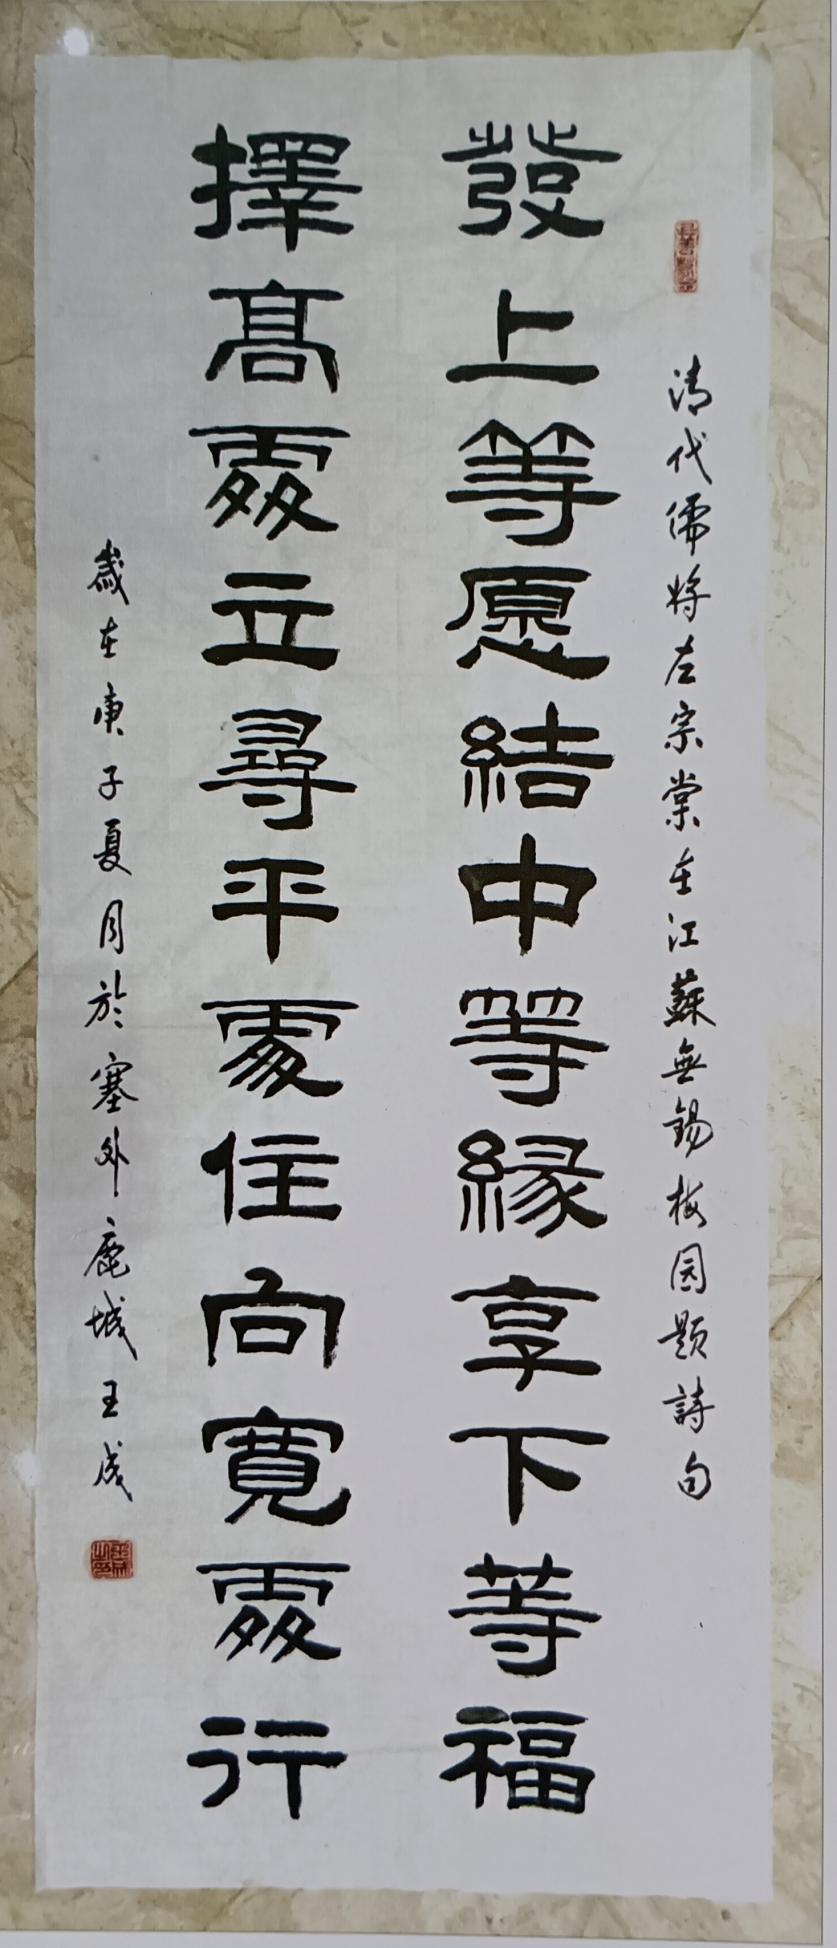 清代儒将左宗棠在江蘇無锡梅园题詩句
發上等愿結中等緣享下等福
擇髙處立尋平處住向寬處行
歲在庚子夏月於塞外鹿城王成